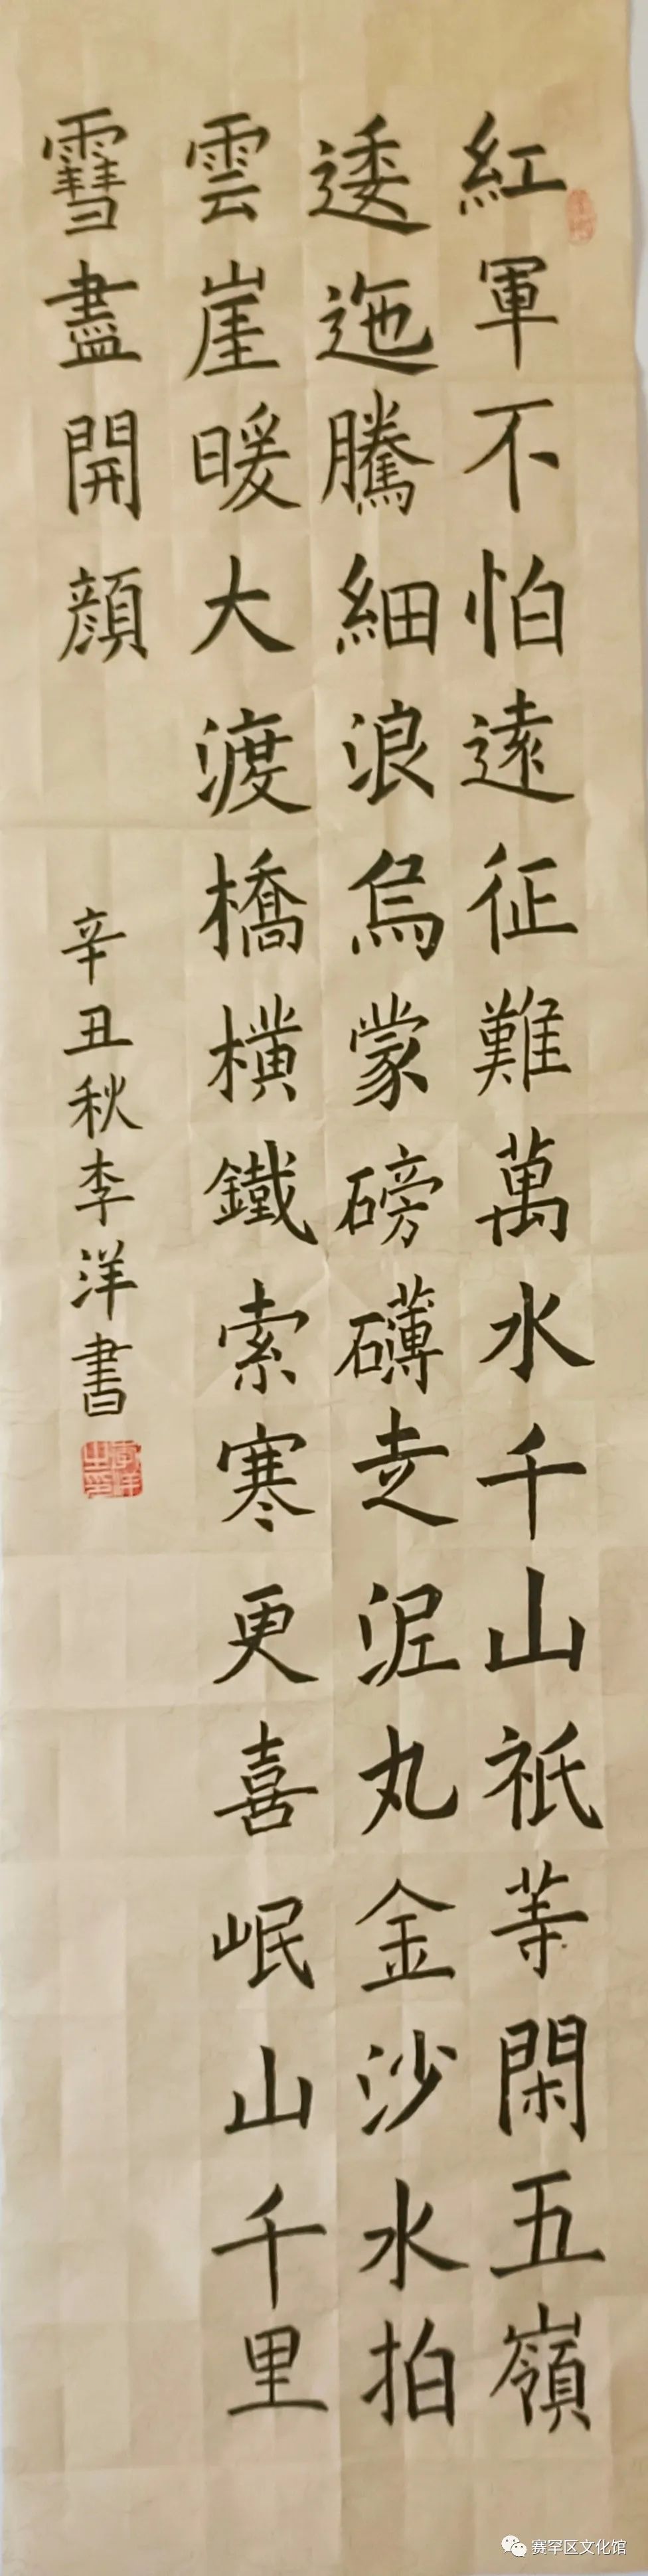 紅軍不怕遠征難萬水千山祇等閑五嶺
逶迤騰細浪烏蒙磅礴走泥丸金沙水拍
雲崖暖大渡橋橫鐵索寒更喜岷山千里
雪盡開顏
辛丑秋李洋書
赛罕区文化馆